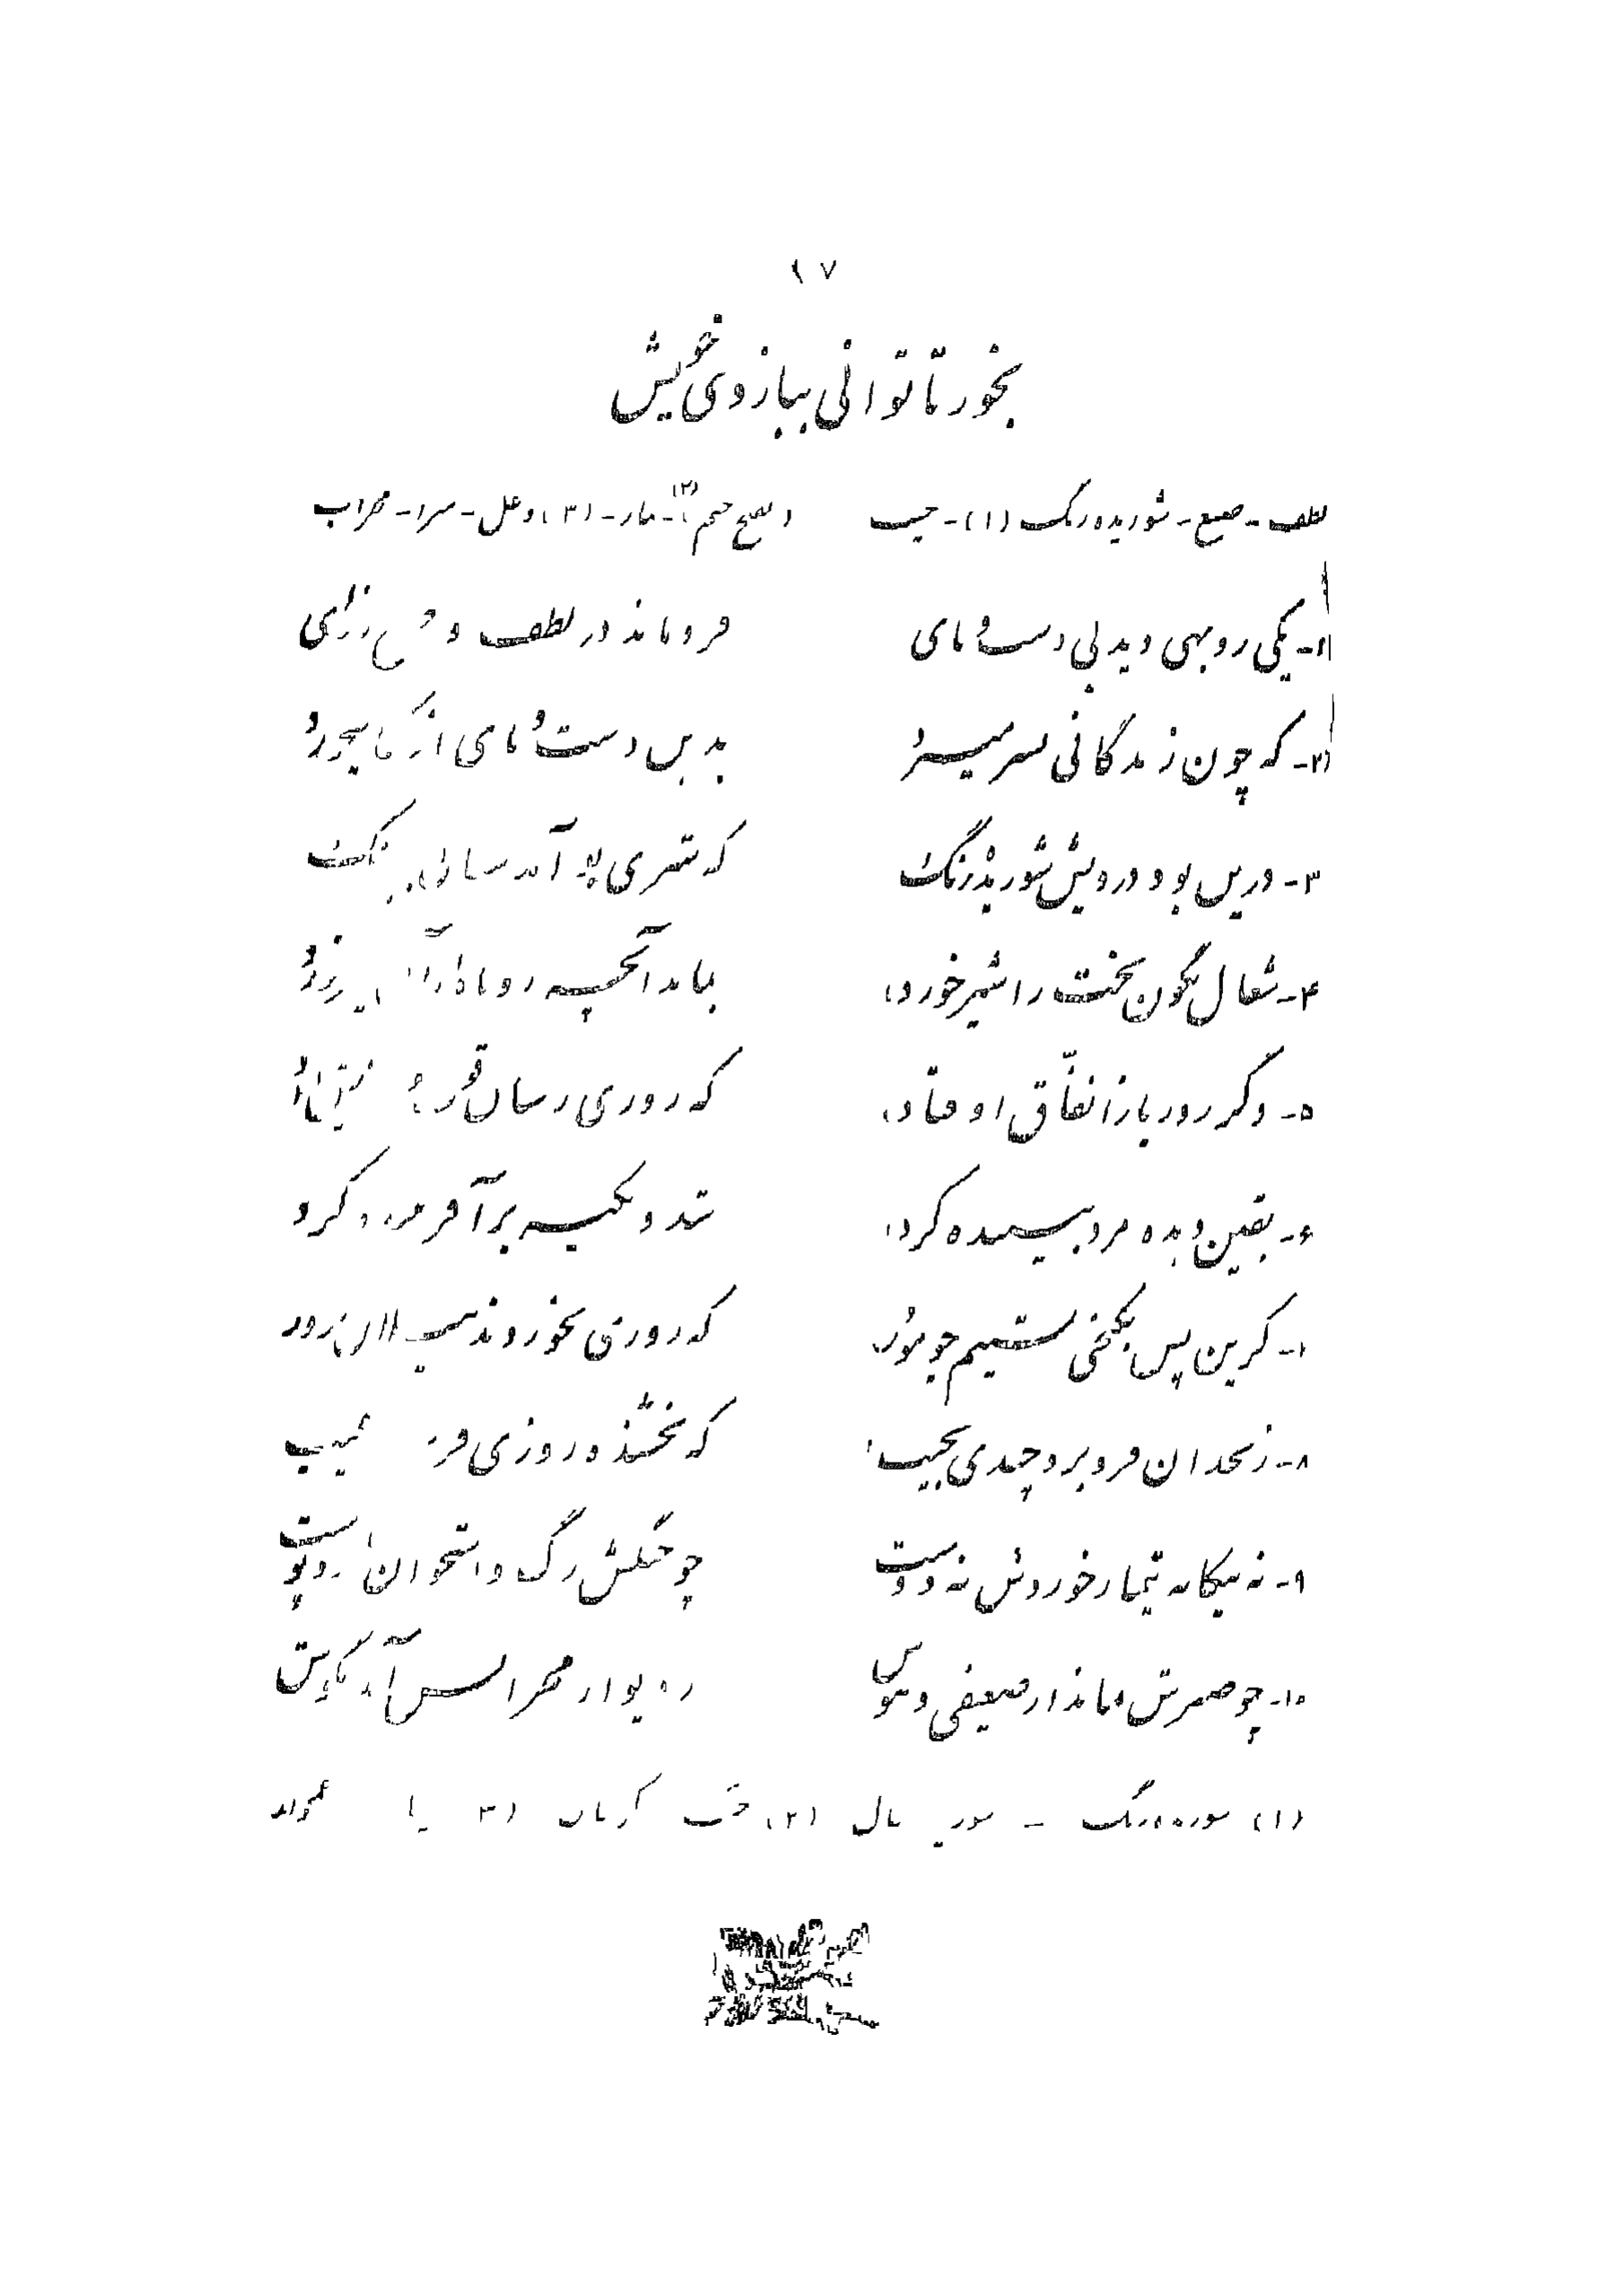 ۱۷
بخور تا توانی ببازوی خویش
لطف - صنع - شوریده رنگ (۱) - جیب
۱- یکی روبهی دید بی دست و پای فروماند در لطف و صنع خدای
۲- که چون زندگانی بسر میبرد بدین دست و پای از کجا میخورد
۳- درین بود درویش شوریده رنگ که شیری بر آمد شغالی بچنگ
۴- شغال نگون بخت را شیر خورد بماند آنچه روباه از آن سیر خورد
۵- دگر روز باز اتفاق اوفتاد که روزی رسان قوت
۶- یقین دیده مرد بیننده کرد شد و تکیه بر آفریننده کرد
۷- کزین پس بکنجی نشینم چو مور که روزی نخوردند پیلان بزور
۸- زنخدان فرو برد چندی بجیب که بخشنده روزی فرستد ز غیب
۹- نه بیگانه تیمار خوردش نه دوست چو چنگش رگ و استخوان ماند و پوست
۱۰- چو صبرش نماند از ضعیفی و هوش ز دیوار محرابش آمد بگوش
(۱) شوریده رنگ - شوریده حال (۲)